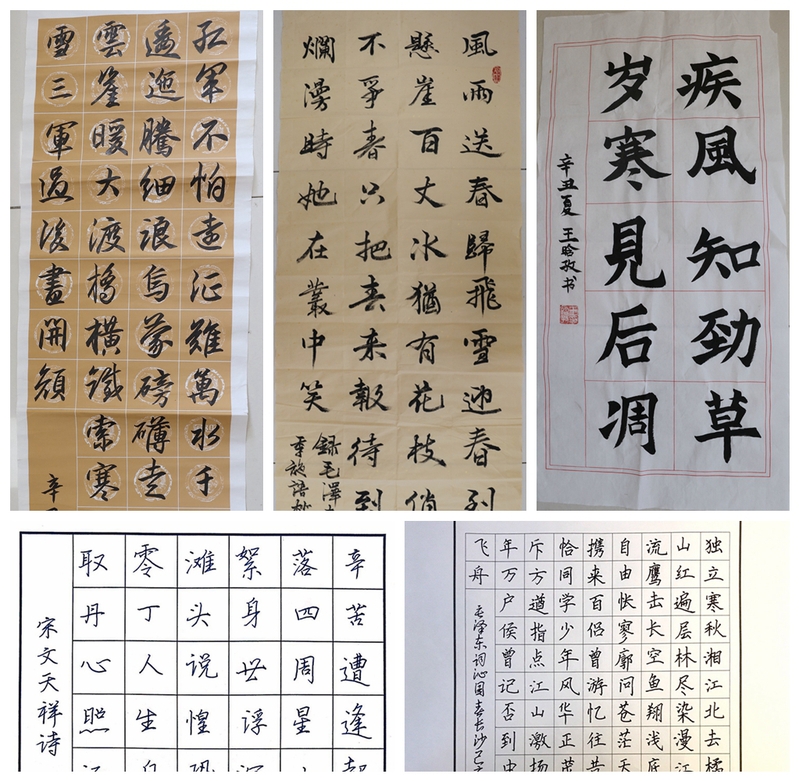 紅軍不怕遠征難萬水千
逶迤騰細浪烏蒙磅礴走
雲崖暖大渡橋橫鐵索寒
雪三軍過後盡開顏
辛
風雨送春歸飛雪迎春到
懸崖百丈冰猶有花枝俏
不爭春只把春來報待到
爛漫時她在叢中笑
錄毛澤
疾風知劲草
岁寒見后凋
辛丑夏 王晗孜书
辛苦遭逢起
落四周星
絮身世浮沉
滩头说惶恐
零丁人生自
取丹心照
宋文天祥诗
独立寒秋湘江北去橘
山红遍层林尽染漫江
流鹰击长空鱼翔浅底
自由怅寥廓问苍茫
携来百侣曾游忆往
恰同学少年风华正茂
斥方遒指点江山激扬
年万户侯曾记否到中
飞舟
毛泽东词沁园春长沙